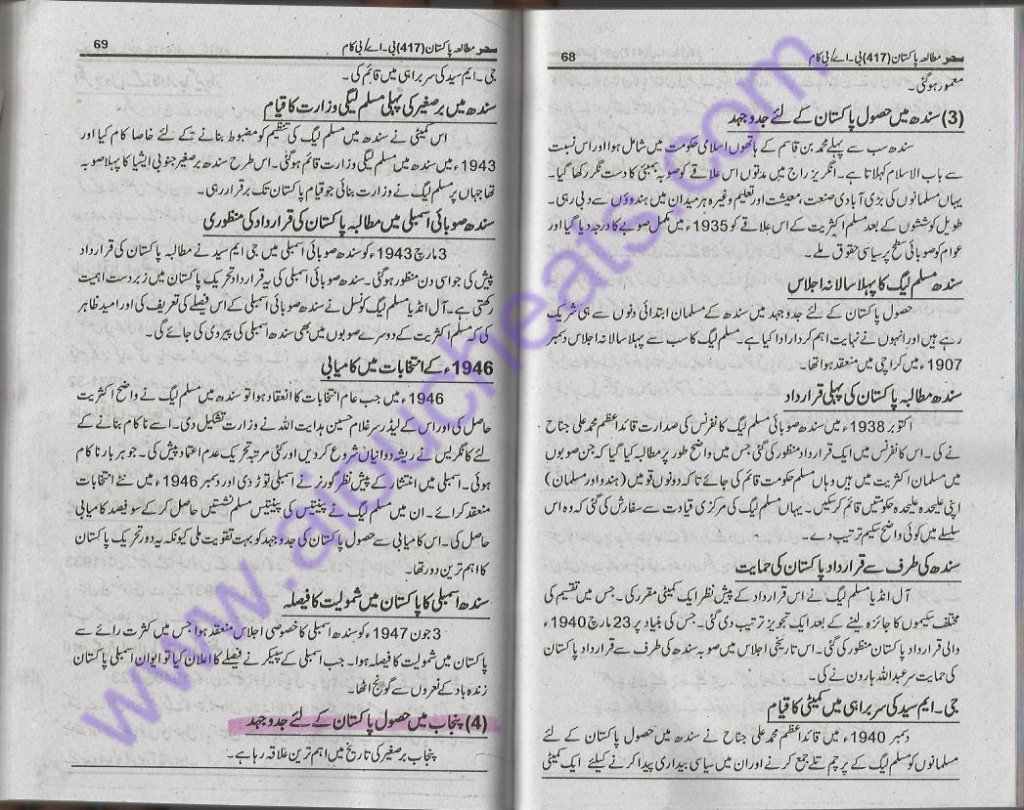 سحر مطالعہ پاکستان (417) بی۔اے/بی کام 68
معمور ہوگئی۔
(3) سندھ میں حصول پاکستان کے لئے جدوجہد
سندھ سب سے پہلے محمد بن قاسم کے ہاتھوں اسلامی حکومت میں شامل ہوا اور اس نسبت
سے باب الاسلام کہلاتا ہے۔ انگریز راج میں مدتوں اس علاقے کو صوبہ بمبئی کا دست نگر رکھا گیا۔
یہاں مسلمانوں کی بڑی آبادی صنعت، معیشت اور تعلیم وغیرہ ہر میدان میں ہندوؤں سے دبی رہی۔
طویل کوششوں کے بعد مسلم اکثریت کے اس علاقے کو 1935ء میں مکمل صوبے کا درجہ دیا گیا اور
عوام کو صوبائی سطح پر سیاسی حقوق ملے۔
سندھ مسلم لیگ کا پہلا سالانہ اجلاس
حصول پاکستان کے لئے جدوجہد میں سندھ کے مسلمان ابتدائی دنوں سے ہی شریک
رہے ہیں اور انہوں نے نہایت اہم کردار ادا کیا ہے۔ مسلم لیگ کا سب سے پہلا سالانہ اجلاس دسمبر
1907ء میں کراچی میں منعقد ہوا تھا۔
سندھ مطالبہ پاکستان کی پہلی قرارداد
اکتوبر 1938ء میں سندھ صوبائی مسلم لیگ کانفرنس کی صدارت قائداعظم محمد علی جناح
نے کی۔ اس کانفرنس میں ایک قرارداد منظور کی گئی جس میں واضح طور پر مطالبہ کیا گیا کہ جن صوبوں
میں مسلمان اکثریت میں ہیں وہاں مسلم حکومت قائم کی جائے تاکہ دونوں قومیں (ہندو اور مسلمان)
اپنی علیحدہ علیحدہ حکومتیں قائم کرسکیں۔ یہاں مسلم لیگ کی مرکزی قیادت سے سفارش کی گئی کہ وہ اس
سلسلے میں کوئی واضح سکیم ترتیب دے۔
سندھ کی طرف سے قرارداد پاکستان کی حمایت
آل انڈیا مسلم لیگ نے اس قرارداد کے پیش نظر ایک کمیٹی مقرر کی۔ جس میں تقسیم کی
مختلف سکیموں کا جائزہ لینے کے بعد ایک تجویز ترتیب دی گئی۔ جس کی بنیاد پر 23 مارچ 1940ء
والی قرارداد پاکستان منظور کی گئی۔ اس تاریخی اجلاس میں صوبہ سندھ کی طرف سے قرارداد پاکستان
کی حمایت سر عبداللہ ہارون نے کی۔
جی۔ایم سید کی سربراہی میں کمیٹی کا قیام
دسمبر 1940ء میں قائداعظم محمد علی جناح نے سندھ میں حصول پاکستان کے لئے
مسلمانوں کو مسلم لیگ کے پرچم تلے جمع کرنے اور ان میں سیاسی بیداری پیدا کرنے کیلئے ایک کمیٹی
سحر مطالعہ پاکستان (417) بی۔اے/بی کام 69
جی۔ایم سید کی سربراہی میں قائم کی۔
سندھ میں برصغیر کی پہلی مسلم لیگی وزارت کا قیام
اس کمیٹی نے سندھ میں مسلم لیگ کی تنظیم کو مضبوط بنانے کے لئے خاصا کام کیا اور
1943ء میں سندھ میں مسلم لیگی وزارت قائم ہوگئی۔ اس طرح سندھ برصغیر جنوبی ایشیا کا پہلا صوبہ
تھا جہاں پر مسلم لیگ نے وزارت بنائی جو قیام پاکستان تک برقرار رہی۔
سندھ صوبائی اسمبلی میں مطالبہ پاکستان کی قرارداد کی منظوری
3 مارچ 1943ء کو سندھ صوبائی اسمبلی میں جی ایم سید نے مطالبہ پاکستان کی قرارداد
پیش کی جو اسی دن منظور ہوگئی۔ سندھ صوبائی اسمبلی کی یہ قرارداد تحریک پاکستان میں زبردست اہمیت
رکھتی ہے۔ آل انڈیا مسلم لیگ کونسل نے سندھ صوبائی اسمبلی کے اس فیصلے کی تعریف کی اور امید ظاہر
کی کہ مسلم اکثریت کے دوسرے صوبوں میں بھی سندھ اسمبلی کی پیروی کی جائے گی۔
1946ء کے انتخابات میں کامیابی
1946ء میں جب عام انتخابات کا انعقاد ہوا تو سندھ میں مسلم لیگ نے واضح اکثریت
حاصل کی اور اس کے لیڈر سر غلام حسین ہدایت اللہ نے وزارت تشکیل دی۔ اسے ناکام بنانے کے
لئے کانگریس نے ریشہ دوانیاں شروع کردیں اور کئی مرتبہ تحریک عدم اعتماد پیش کی۔ جو ہر بار ناکام
ہوئی۔ اسمبلی میں انتشار کے پیش نظر گورنر نے اسمبلی توڑ دی اور دسمبر 1946ء میں نئے انتخابات
منعقد کرائے۔ ان میں مسلم لیگ نے پینتیس کی پینتیس مسلم نشستیں حاصل کرکے سو فیصد کامیابی
حاصل کی۔ اس کامیابی سے حصول پاکستان کی جدوجہد کو بہت تقویت ملی کیونکہ یہ دور تحریک پاکستان
کا اہم ترین دور تھا۔
سندھ اسمبلی کا پاکستان میں شمولیت کا فیصلہ
3 جون 1947ء کو سندھ اسمبلی کا خصوصی اجلاس منعقد ہوا جس میں کثرت رائے سے
پاکستان میں شمولیت کا فیصلہ ہوا۔ جب اسمبلی کے سپیکر نے فیصلے کا اعلان کیا تو ایوان اسمبلی پاکستان
زندہ باد کے نعروں سے گونج اٹھا۔
(4) پنجاب میں حصول پاکستان کے لئے جدوجہد
پنجاب برصغیر کی تاریخ میں اہم ترین علاقہ رہا ہے۔
www.aioucheats.com